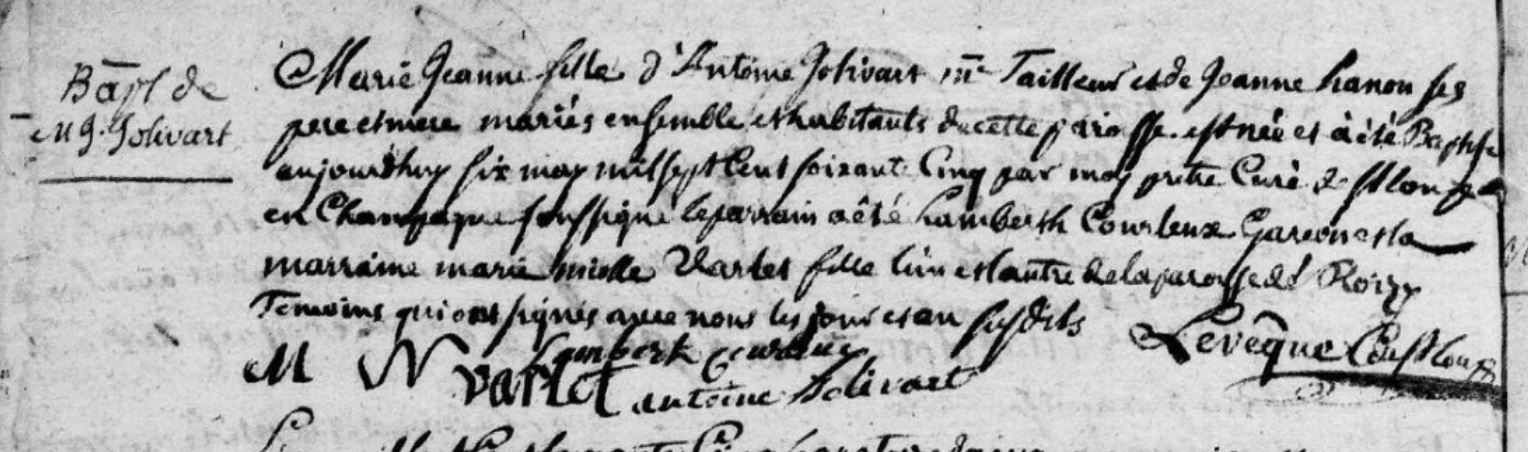 Bapt de
M J Jolivart
Marie Jeanne fille d'Antoine Jolivart me Tailleur et de Jeanne hanon ses
pere et mere mariés ensemble et habitants de cette paroisse est née et à été Baptisée
aujourdhuy six may mil sept Cent soixante Cinq par moy pretre Curé de st loup
en Champagne soussigné le parrain a été Lamberth Courteux Garcon et la
marraine marie nicolle Varlet fille l'un et lautre de la paroisse de Roizy
Temoins qui ont signés avec nous les jour et an susdits
Levêque C de st loup
Lambert Courteux
M N varlet antoine Jolivart